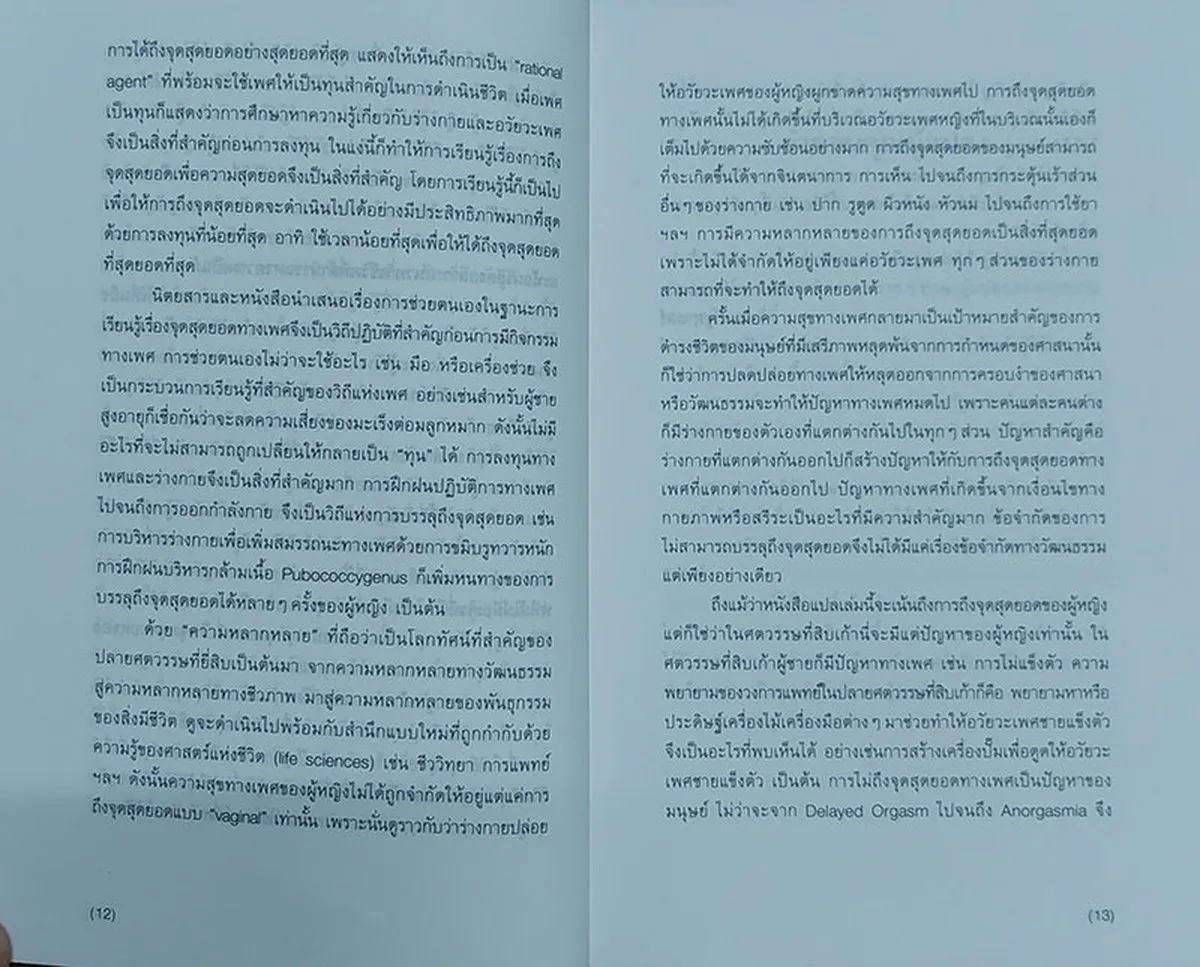 การได้ถึงจุดสุดยอดอย่างสุดยอดที่สุด แสดงให้เห็นถึงการเป็น “rational
agent” ที่พร้อมจะใช้เพศให้เป็นทุนสำคัญในการดำเนินชีวิต เมื่อเพศ
เป็นทุนก็แสดงว่าการศึกษาหาความรู้เกี่ยวกับร่างกายและอวัยวะเพศ
จึงเป็นสิ่งที่สำคัญก่อนการลงทุน ในแง่นี้ก็ทำให้การเรียนรู้เรื่องการถึง
จุดสุดยอดเพื่อความสุดยอดจึงเป็นสิ่งที่สำคัญ โดยการเรียนรู้นี้ก็เป็นไป
เพื่อให้การถึงจุดสุดยอดจะดำเนินไปได้อย่างมีประสิทธิภาพมากที่สุด
ด้วยการลงทุนที่น้อยที่สุด อาทิ ใช้เวลาน้อยที่สุดเพื่อให้ได้ถึงจุดสุดยอด
ที่สุดยอดที่สุด
นิตยสารและหนังสือนำเสนอเรื่องการช่วยตนเองในฐานะการ
เรียนรู้เรื่องจุดสุดยอดทางเพศจึงเป็นวิถีปฏิบัติที่สำคัญก่อนการมีกิจกรรม
ทางเพศ การช่วยตนเองไม่ว่าจะใช้อะไร เช่น มือ หรือเครื่องช่วย จึง
เป็นกระบวนการเรียนรู้ที่สำคัญของวิถีแห่งเพศ อย่างเช่นสำหรับผู้ชาย
สูงอายุก็เชื่อกันว่าจะลดความเสี่ยงของมะเร็งต่อมลูกหมาก ดังนั้นไม่มี
อะไรที่จะไม่สามารถถูกเปลี่ยนให้กลายเป็น “ทุน” ได้ การลงทุนทาง
เพศและร่างกายจึงเป็นสิ่งที่สำคัญมาก การฝึกฝนปฏิบัติการทางเพศ
ไปจนถึงการออกกำลังกาย จึงเป็นวิถีแห่งการบรรลุถึงจุดสุดยอด เช่น
การบริหารร่างกายเพื่อเพิ่มสมรรถนะทางเพศด้วยการขมิบรูทวารหนัก
การฝึกฝนบริหารกล้ามเนื้อ Pubococcygenus ก็เพิ่มหนทางของการ
บรรลุถึงจุดสุดยอดได้หลายๆ ครั้งของผู้หญิง เป็นต้น
ด้วย “ความหลากหลาย” ที่ถือว่าเป็นโลกทัศน์ที่สำคัญของ
ปลายศตวรรษที่ยี่สิบเป็นต้นมา จากความหลากหลายทางวัฒนธรรม
สู่ความหลากหลายทางชีวภาพ มาสู่ความหลากหลายของพันธุกรรม
ของสิ่งมีชีวิต ดูจะดำเนินไปพร้อมกับสำนึกแบบใหม่ที่ถูกกำกับด้วย
ความรู้ของศาสตร์แห่งชีวิต (life sciences) เช่น ชีววิทยา การแพทย์
ฯลฯ ดังนั้นความสุขทางเพศของผู้หญิงไม่ได้ถูกจำกัดให้อยู่แต่แค่การ
ถึงจุดสุดยอดแบบ “vaginal” เท่านั้น เพราะนั่นดูราวกับว่าร่างกายปล่อย
(12)
ให้อวัยวะเพศของผู้หญิงผูกขาดความสุขทางเพศไป การถึงจุดสุดยอด
ทางเพศนั้นไม่ได้เกิดขึ้นที่บริเวณอวัยวะเพศหญิงที่ในบริเวณนั้นเองก็
เต็มไปด้วยความซับซ้อนอย่างมาก การถึงจุดสุดยอดของมนุษย์สามารถ
ที่จะเกิดขึ้นได้จากจินตนาการ การเห็น ไปจนถึงการกระตุ้นเร้าส่วน
อื่นๆ ของร่างกาย เช่น ปาก รูตูด ผิวหนัง หัวนม ไปจนถึงการใช้ยา
ฯลฯ การมีความหลากหลายของการถึงจุดสุดยอดเป็นสิ่งที่สุดยอด
เพราะไม่ได้จำกัดให้อยู่เพียงแค่อวัยวะเพศ ทุกๆ ส่วนของร่างกาย
สามารถที่จะทำให้ถึงจุดสุดยอดได้
ครั้นเมื่อความสุขทางเพศกลายมาเป็นเป้าหมายสำคัญของการ
ดำรงชีวิตของมนุษย์ที่มีเสรีภาพหลุดพ้นจากการกำหนดของศาสนานั้น
ก็ใช่ว่าการปลดปล่อยทางเพศให้หลุดออกจากการครอบงำของศาสนา
หรือวัฒนธรรมจะทำให้ปัญหาทางเพศหมดไป เพราะคนแต่ละคนต่าง
ก็มีร่างกายของตัวเองที่แตกต่างกันไปในทุกๆ ส่วน ปัญหาสำคัญคือ
ร่างกายที่แตกต่างกันออกไปก็สร้างปัญหาให้กับการถึงจุดสุดยอดทาง
เพศที่แตกต่างกันออกไป ปัญหาทางเพศที่เกิดขึ้นจากเงื่อนไขทาง
กายภาพหรือสรีระเป็นอะไรที่มีความสำคัญมาก ข้อจำกัดของการ
ไม่สามารถบรรลุถึงจุดสุดยอดจึงไม่ได้มีแค่เรื่องข้อจำกัดทางวัฒนธรรม
แต่เพียงอย่างเดียว
ถึงแม้ว่าหนังสือแปลเล่มนี้จะเน้นถึงการถึงจุดสุดยอดของผู้หญิง
แต่ก็ใช่ว่าในศตวรรษที่สิบเก้านี่จะมีแต่ปัญหาของผู้หญิงเท่านั้น ใน
ศตวรรษที่สิบเก้าผู้ชายก็มีปัญหาทางเพศ เช่น การไม่แข็งตัว ความ
พยายามของวงการแพทย์ในปลายศตวรรษที่สิบเก้าก็คือ พยายามหาหรือ
ประดิษฐ์เครื่องไม้เครื่องมือต่างๆ มาช่วยทำให้อวัยวะเพศชายแข็งตัว
จึงเป็นอะไรที่พบเห็นได้ อย่างเช่นการสร้างเครื่องปั๊มเพื่อดูดให้อวัยวะ
เพศชายแข็งตัว เป็นต้น การไม่ถึงจุดสุดยอดทางเพศเป็นปัญหาของ
มนุษย์ ไม่ว่าจะจาก Delayed Orgasm ไปจนถึง Anorgasmia จึง
(13)